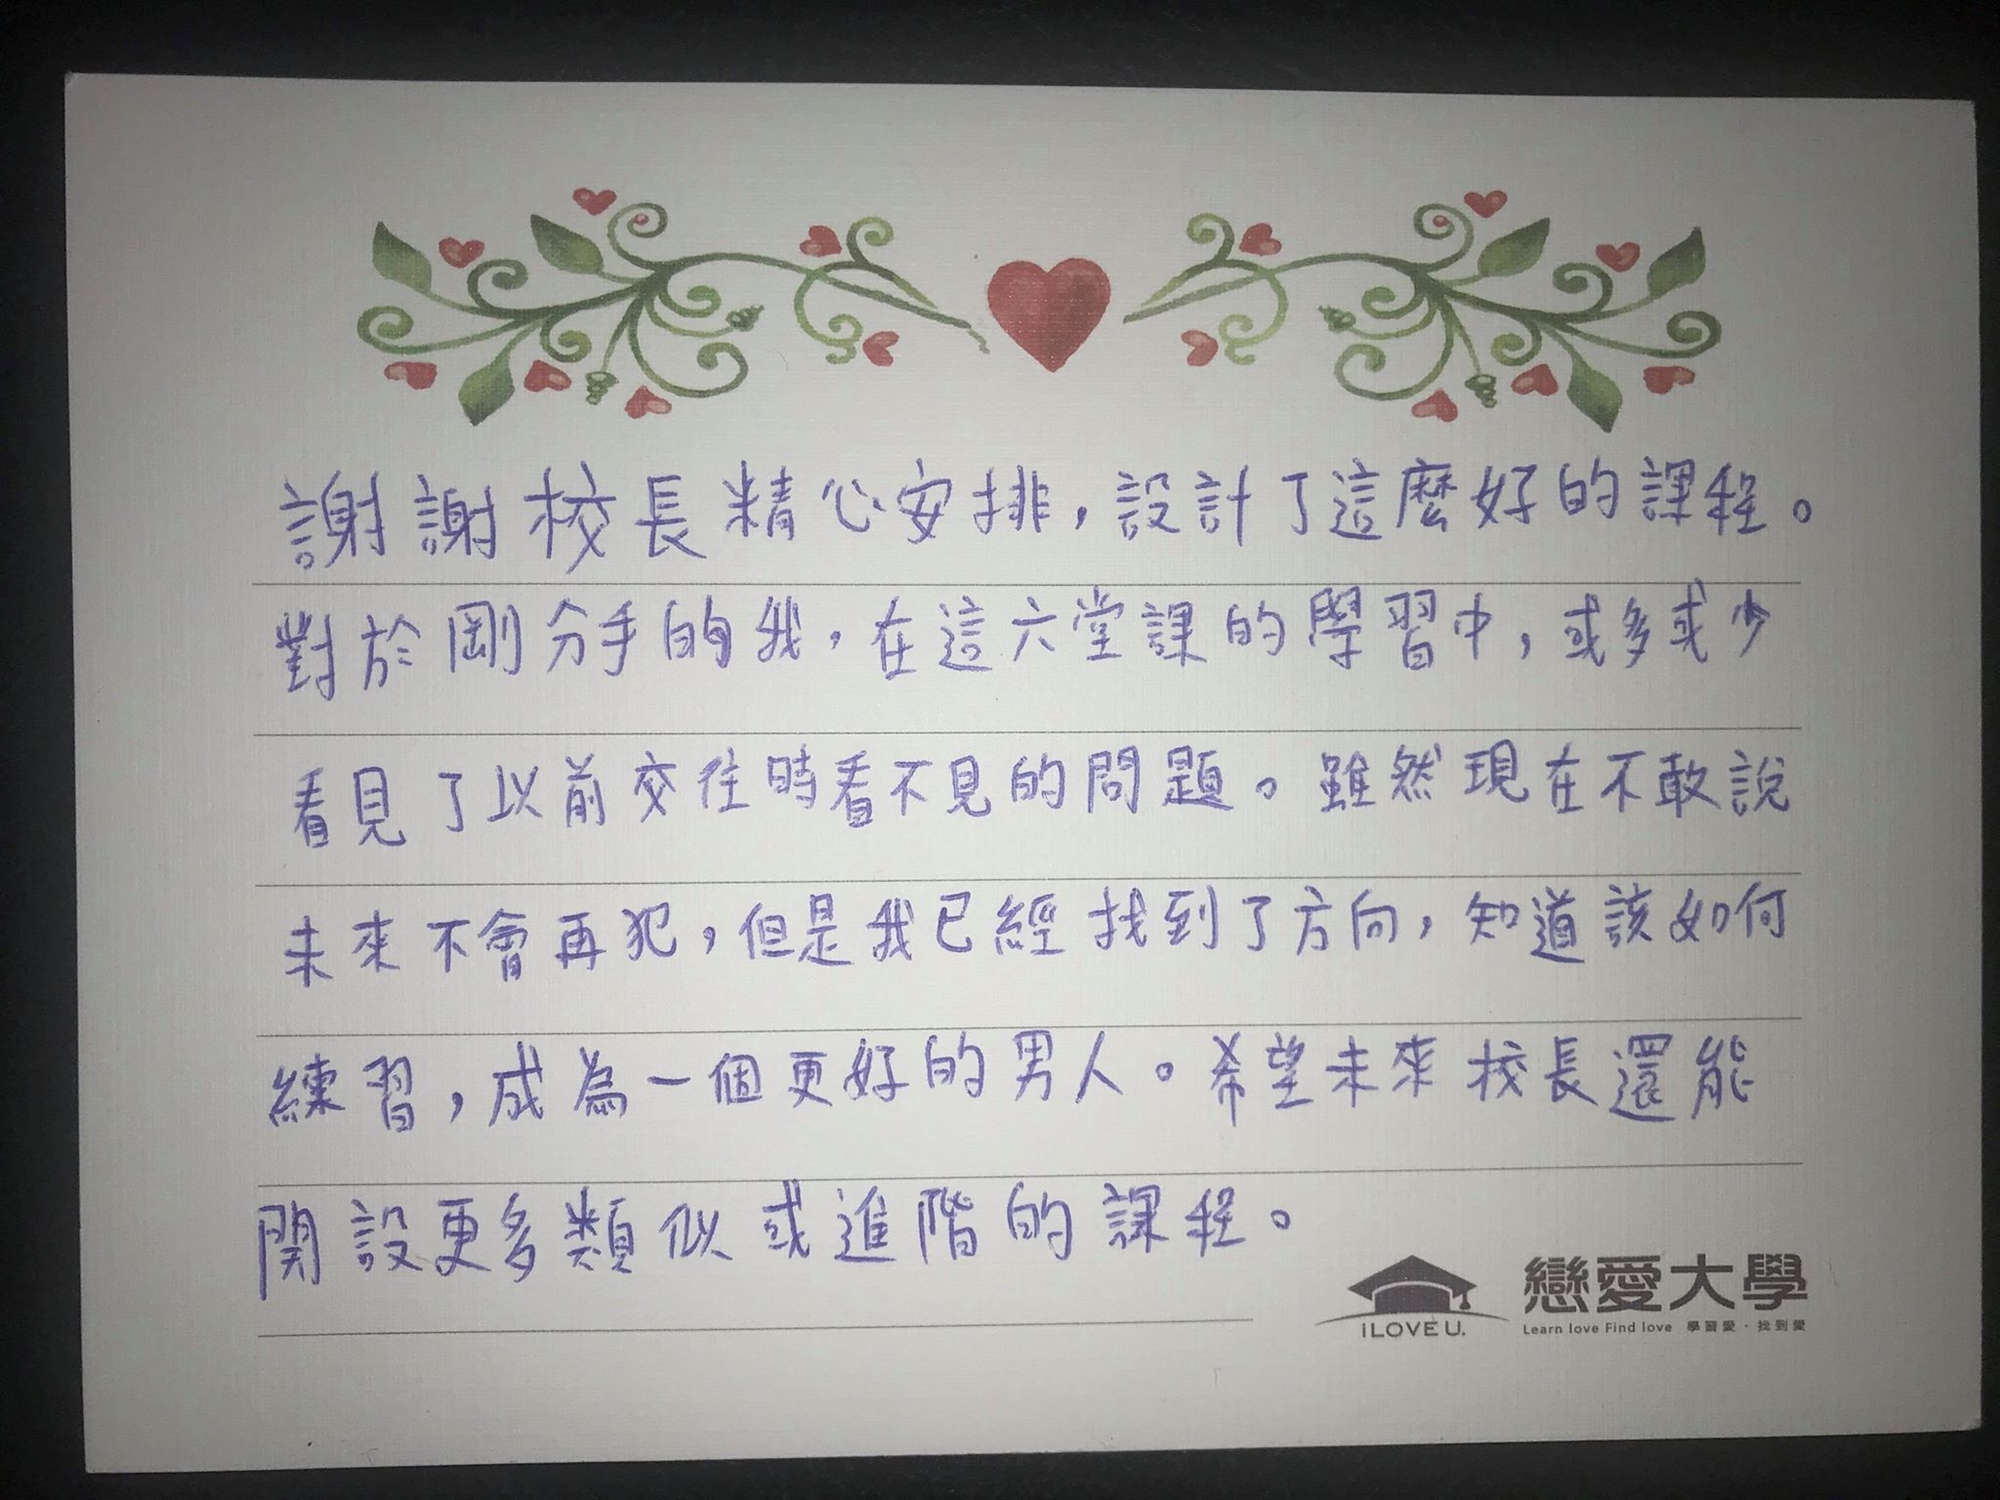 謝謝校長精心安排，設計了這麼好的課程。
對於剛分手的我，在這六堂課的學習中，或多或少
看見了以前交往時看不見的問題。雖然現在不敢說
未來不會再犯，但是我已經找到了方向，知道該如何
練習，成為一個更好的男人。希望未來校長還能
開設更多類似或進階的課程。
戀愛大學
iLOVE U.
Learn love Find love 學習愛・找到愛